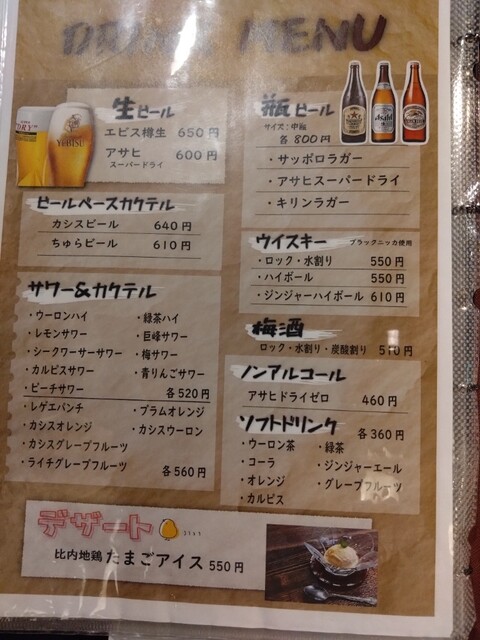 DRINK MENU
生ビール
エビス樽生 650円
アサヒ 600円
スーパードライ
瓶ビール
サイズ：中瓶
各800円
・サッポロラガー
・アサヒスーパードライ
・キリンラガー
ビールベースカクテル
カシスビール 640円
ちゅらビール 610円
ウイスキー ブラックニッカ使用
・ロック・水割り 550円
・ハイボール 550円
・ジンジャーハイボール 610円
サワー&カクテル
・ウーロンハイ ・緑茶ハイ
・レモンサワー ・巨峰サワー
・シークワーサーサワー ・梅サワー
・カルピスサワー ・青りんごサワー
・ピーチサワー 各520円
・レゲエパンチ ・プラムオレンジ
・カシスオレンジ ・カシスウーロン
・カシスグレープフルーツ
・ライチグレープフルーツ 各560円
梅酒
ロック・水割り・炭酸割り 510円
ノンアルコール
アサヒドライゼロ 460円
ソフトドリンク 各360円
・ウーロン茶 ・緑茶
・コーラ ・ジンジャーエール
・オレンジ ・グレープフルーツ
・カルピス
デザート
比内地鶏 たまごアイス 550円